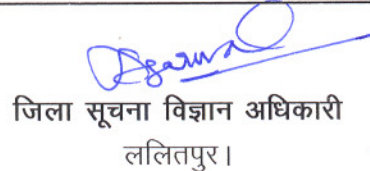 जिला सूचना विज्ञान अधिकारी
ललितपुर।